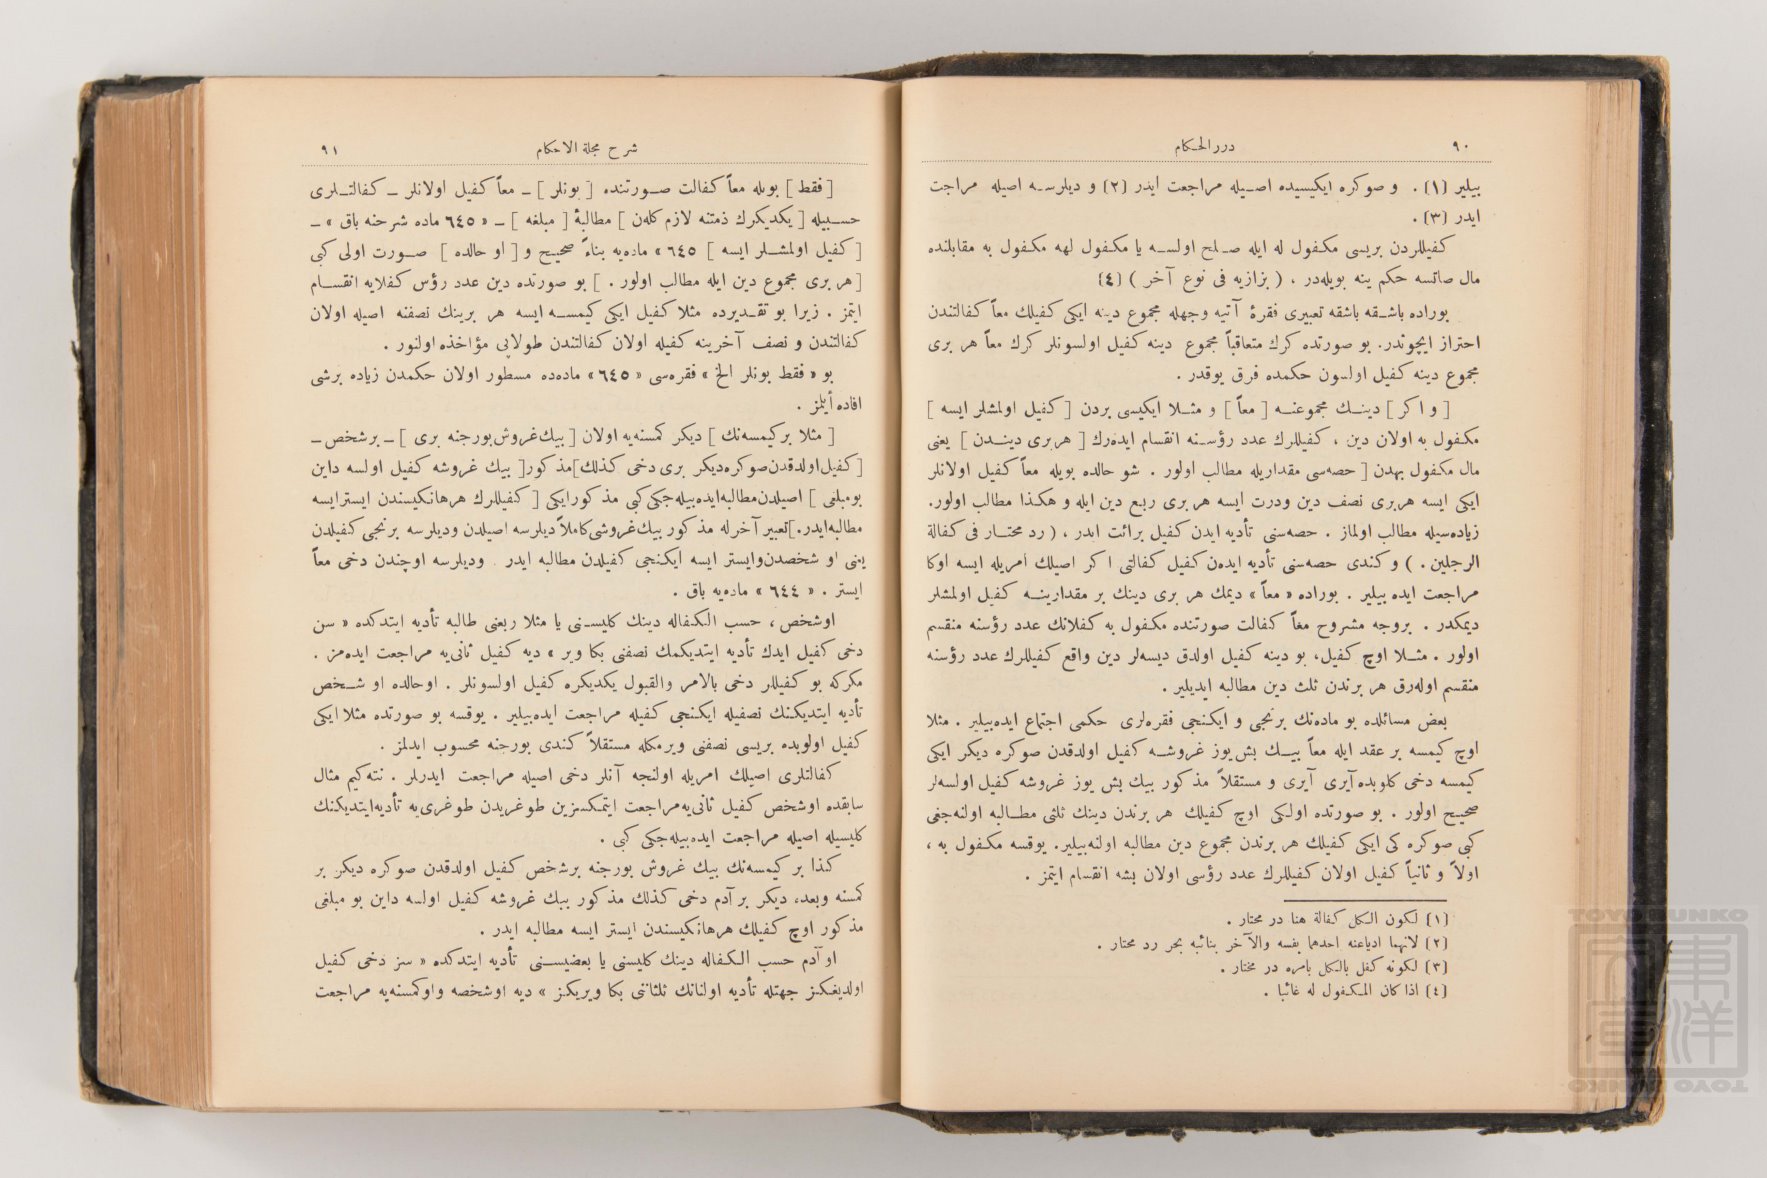 ٩٠
دررالحكام
بيلير (١) . و صوكره ايكيسيده اصيله مراجعت ايدر (٢) و ديلرسه اصيله مراجعت
ايدر (٣) .
كفيللردن بريسى مكفول له ايله صلح اولسه يا مكفول لهه مكفول به مقابلنده
مال صاتسه حكم ينه بويله‌در . ( بزازيه فى نوع آخر ) (٤)
بوراده باشقه باشقه تعبيرى فقرۀ آتيه وجهله مجموع دينه ايكى كفيلك معاً كفالتندن
احتراز ايچوندر. بو صورتده كرك متعاقباً مجموع دينه كفيل اولسونلر كرك معاً هر برى
مجموع دينه كفيل اولسون حكمده فرق يوقدر .
[ و اكر ] دينك مجموعنه [ معاً ] و مثلا ايكيسى بردن [ كفيل اولمشلر ايسه ]
مكفول به اولان دين ، كفيللرك عدد رؤسنه انقسام ايده‌رك [ هربرى ديندن ] يعنى
مال مكفول بهدن [ حصه‌سى مقداريله مطالب اولور . شو حالده بويله معاً كفيل اولانلر
ايكى ايسه هربرى نصف دين ودرت ايسه هر برى ربع دين ايله و هكذا مطالب اولور.
زياده‌سيله مطالب اولماز . حصه‌سنى تأديه ايدن كفيل برائت ايدر ، ( رد مختار فى كفالة
الرجلين . ) و كندى حصه‌سنى تأديه ايده‌ن كفيل كفالتى اكر اصيلك امريله ايسه اوكا
مراجعت ايده بيلير . بوراده « معاً » ديمك هر برى دينك بر مقدارينه كفيل اولمشلر
ديمكدر . بروجه مشروح معاً كفالت صورتنده مكفول به كفلانك عدد رؤسنه منقسم
اولور . مثلا اوچ كفيل، بو دينه كفيل اولدق ديسه‌لر دين واقع كفيللرك عدد رؤسنه
منقسم اوله‌رق هر برندن ثلث دين مطالبه ايديلير .
بعض مسائلده بو ماده‌نك برنجى و ايكنجى فقره‌لرى حكمى اجتماع ايده‌بيلير . مثلا
اوچ كيمسه بر عقد ايله معاً بيك بش يوز غروشه كفيل اولدقدن صوكره ديكر ايكى
كيمسه دخى كلوبده آيرى آيرى و مستقلاً مذكور بيك بش يوز غروشه كفيل اولسه‌لر
صحيح اولور . بو صورتده اولكى اوچ كفيلك هر برندن دينك ثلثى مطالبه اولنه‌جغى
كبى صوكره كى ايكى كفيلك هر برندن مجموع دين مطالبه اولنه‌بيلير. يوقسه مكفول به ،
اولاً و ثانياً كفيل اولان كفيللرك عدد رؤسى اولان بشه انقسام ايتمز .
(١) لكون الكل كفالة هنا در مختار .
(٢) لانهما ادياعنه احدهما بنفسه والآخر بنائبه بحر رد محتار .
(٣) لكونه كفل بالكل بامره در مختار .
(٤) اذا كان المكفول له غائبا .
شرح مجلة الاحكام
٩١
[ فقط ] بويله معاً كفالت صورتنده [ بونلر ] ـ معاً كفيل اولانلر ـ كفالتلرى
حسبيله [ يكديكرك ذمتنه لازم كلەن ] مطالبۀ [ مبلغه ] ـ « ٦٤٥ ماده شرحنه باق » ـ
[ كفيل اولمشلر ايسه ] ٦٤٥ » ماده‌يه بناءً صحيح و [ او حالده ] صورت اولى كبى
[ هر برى مجموع دين ايله مطالب اولور . ] بو صورتده دين عدد رؤس كفلايه انقسام
ايتمز . زيرا بو تقديرده مثلا كفيل ايكى كيمسه ايسه هر برينك نصفنه اصيله اولان
كفالتندن و نصف آخرينه كفيله اولان كفالتندن طولايى مؤاخذه اولنور .
بو « فقط بونلر الخ » فقره‌سى « ٦٤٥ » ماده‌ده مسطور اولان حكمدن زياده برشى
افاده أيلمز .
[ مثلا بركيمسه‌نك ] ديكر كمسنه‌يه اولان [ بيك‌غروش‌بورجنه برى ] ـ برشخص ـ
[ كفيل‌اولدقدن‌صوكره‌ديكر برى دخى كذلك]مذكور[ بيك غروشه كفيل اولسه داين
بومبلغى ] اصيلدن‌مطالبه‌ايده‌بيله‌جكى‌كبى مذكورايكى [ كفيللرك هرهانكيسندن ايسترايسه
مطالبه‌ايدر.]تعبير آخرله مذكور بيك‌غروشى‌كاملاً ديلرسه اصيلدن وديلرسه برنجى كفيلدن
يعنى او شخصدن‌وايستر ايسه ايكنجى كفيلدن مطالبه ايدر . وديلرسه اوچندن دخى معاً
ايستر . « ٦٤٤ » ماده‌يه باق .
اوشخص ، حسب الكفاله دينك كليسنى يا مثلا ربعنى طالبه تأديه ايتدكده « سن
دخى كفيل ايدك تأديه ايتديكمك نصفنى بكا وير » ديه كفيل ثانى‌يه مراجعت ايده‌مز .
مكركه بو كفيللر دخى بالامر والقبول يكديكره كفيل اولسونلر . اوحالده او شخص
تأديه ايتديكنك نصفيله ايكنجى كفيله مراجعت ايده‌بيلير . يوقسه بو صورتده مثلا ايكى
كفيل اولوبده بريسى نصفنى ويرمكله مستقلاً كندى بورجنه محسوب ايدلمز .
كفالتلرى اصيلك امريله اولنجه آنلر دخى اصيله مراجعت ايدرلر . نته‌كيم مثال
سابقده اوشخص كفيل ثانى‌يه مراجعت ايتمكسزين طوغريدن طوغرى‌يه تأديه‌ايتديكنك
كليسيله اصيله مراجعت ايده‌بيله‌جكى كبى .
كذا بر كيمسه‌نك بيك غروش بورجنه برشخص كفيل اولدقدن صوكره ديكر بر
كمسنه وبعده، ديكر برآدم دخى كذلك مذكور بيك غروشه كفيل اولسه داين بو مبلغى
مذكور اوچ كفيلك هرهانكيسندن ايستر ايسه مطالبه ايدر .
او آدم حسب الكفاله دينك كليسنى يا بعضيسنى تأديه ايتدكده « سز دخى كفيل
اولديغكز جهتله تأديه اولنانك ثلثاننى بكا ويريكز » ديه اوشخصه واوكمسنه‌يه مراجعت
TOYO BUNKO
東洋文庫
TOYO BUNKO